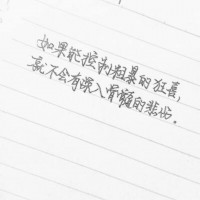 如果能控制粗暴的狂喜,
就不会有深入骨髓的悲伤。